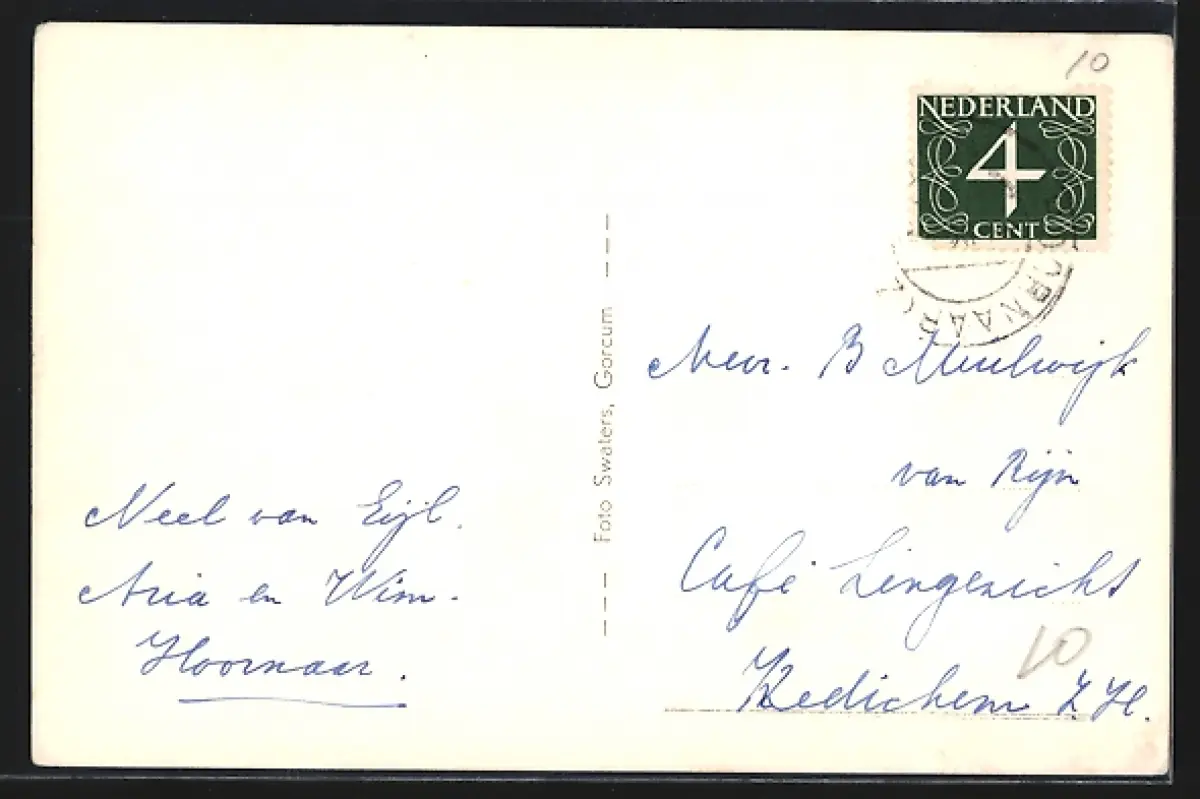 10
NEDERLAND
4
CENT
HOORNAAR
Neel van Eijl.
Aria en Wim.
Hoornaar.
Foto Swaters, Gorcum
Mevr. B Meulwijk
van Rijn
Café Lingezicht
10
Kedichem Z.H.